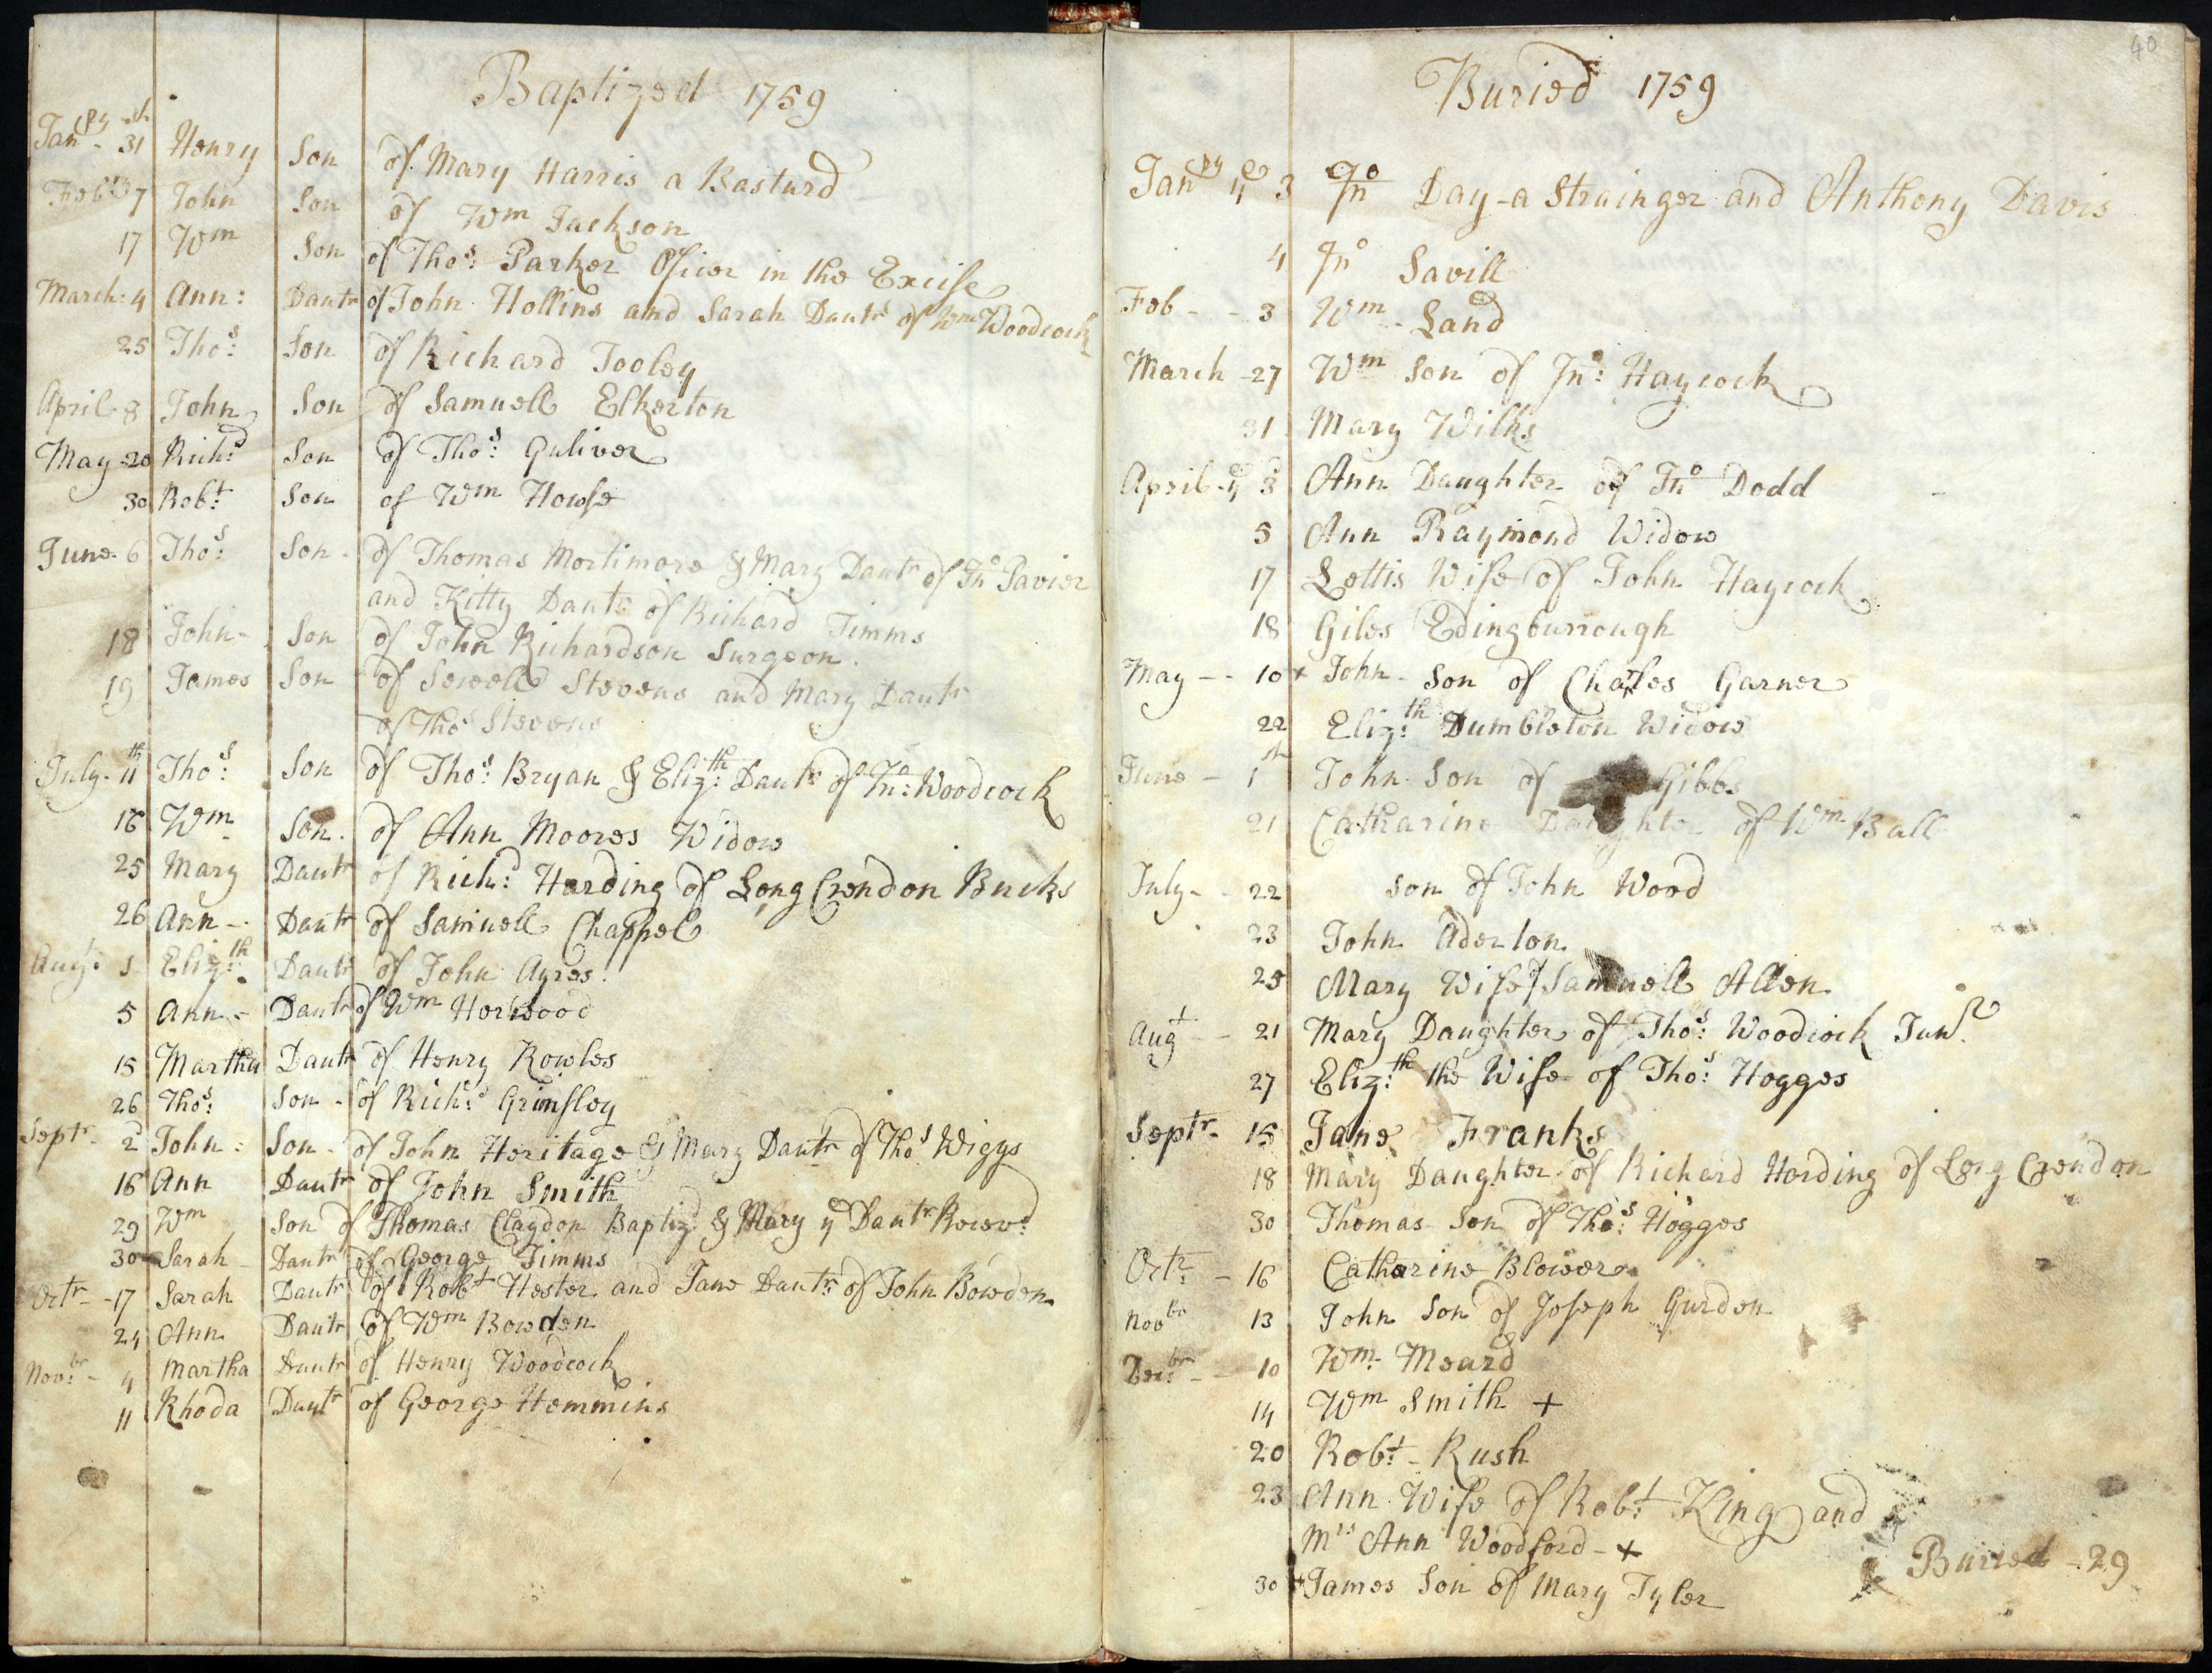 Baptized 1759
Janry 31 Henry Son of Mary Harris a Basturd
Febry 7 John Son of Wm Jackson
17 Wm Son of Thos: Parker Oficer in the Excise
March: 4 Ann: Dautr of John Hollins and Sarah Dautr of Wm Woodcock
25 Thos: Son of Richard Tooley
April 8 John Son of Samuell Elkerton
May 20 Richd: Son of Thos: Guliver
30 Robt: Son of Wm Howse
June 6 Thos: Son of Thomas Mortimore & Mary Dautr of Jno Pavier
and Kitty Dautr of Richard Timms
18 John Son of John Richardson Surgeon.
19 James Son of Sewell Stevens and Mary Dautr
of Thos Stevens
July 11th Thos: Son of Thos: Bryan & Elizth: Dautr of Jno: Woodcock
18 Wm Son of Ann Moores Widow
25 Mary Dautr of Richd: Harding of Long Crendon Bucks
26 Ann Dautr of Samuell Chappel
Augt: 1 Elizth: Dautr of John Ayres.
5 Ann Dautr of Wm Horwood
15 Martha Dautr of Henry Rowles
26 Thos: Son of Richd: Grimsley
Septr 2d John: Son of John Heritage & Mary Dautr of Thos Wiggs
16 Ann Dautr of John Smith
29 Wm Son of Thomas Claydon Baptizd & Mary ye Dautr Receivd:
30 Sarah Dautr of George Timms
Octr 17 Sarah Dautr of Robt Hester and Jane Dautr of John Bowden
24 Ann Dautr of Wm Bowden
Novbr: 4 Martha Dautr of Henry Woodcock
11 Rhoda Dautr of George Hemmins
40
Buried 1759
Janry ye 3 Jno Day a Strainger and Anthony Davis
4 Jno Savill
Feb 3 Wm Land
March 27 Wm Son of Jno: Haycock
31 Mary Wilks
April ye 3 Ann Daughter of Jno Dodd
5 Ann Raymond Widow
17 Lettis Wife of John Haycock
18 Giles Edingburrough
May 10 + John Son of Charles Garner
22 Elizth: Dumbleton Widow
June 1st John Son of Gibbs
21 Catharine Daughter of Wm Ball
July 22 Son of John Wood
23 John Aderton
25 Mary Wife of Samuell Allen
Augt 21 Mary Daughter of Thos: Woodcock Junr.
27 Elizth: the Wife of Thos: Hogges
Septr 15 Jane Franks
18 Mary Daughter of Richard Harding of Long Crendon
30 Thomas Son of Thos: Hogges
Octr 16 Catharine Blower
Novbr 13 John Son of Joseph Gurden
Decbr: 10 Wm Meard
14 Wm Smith +
20 Robt: Rush
23 Ann Wife of Robt: King and
Mrs Ann Woodford +
30 + James Son of Mary Tyler
Buried 29